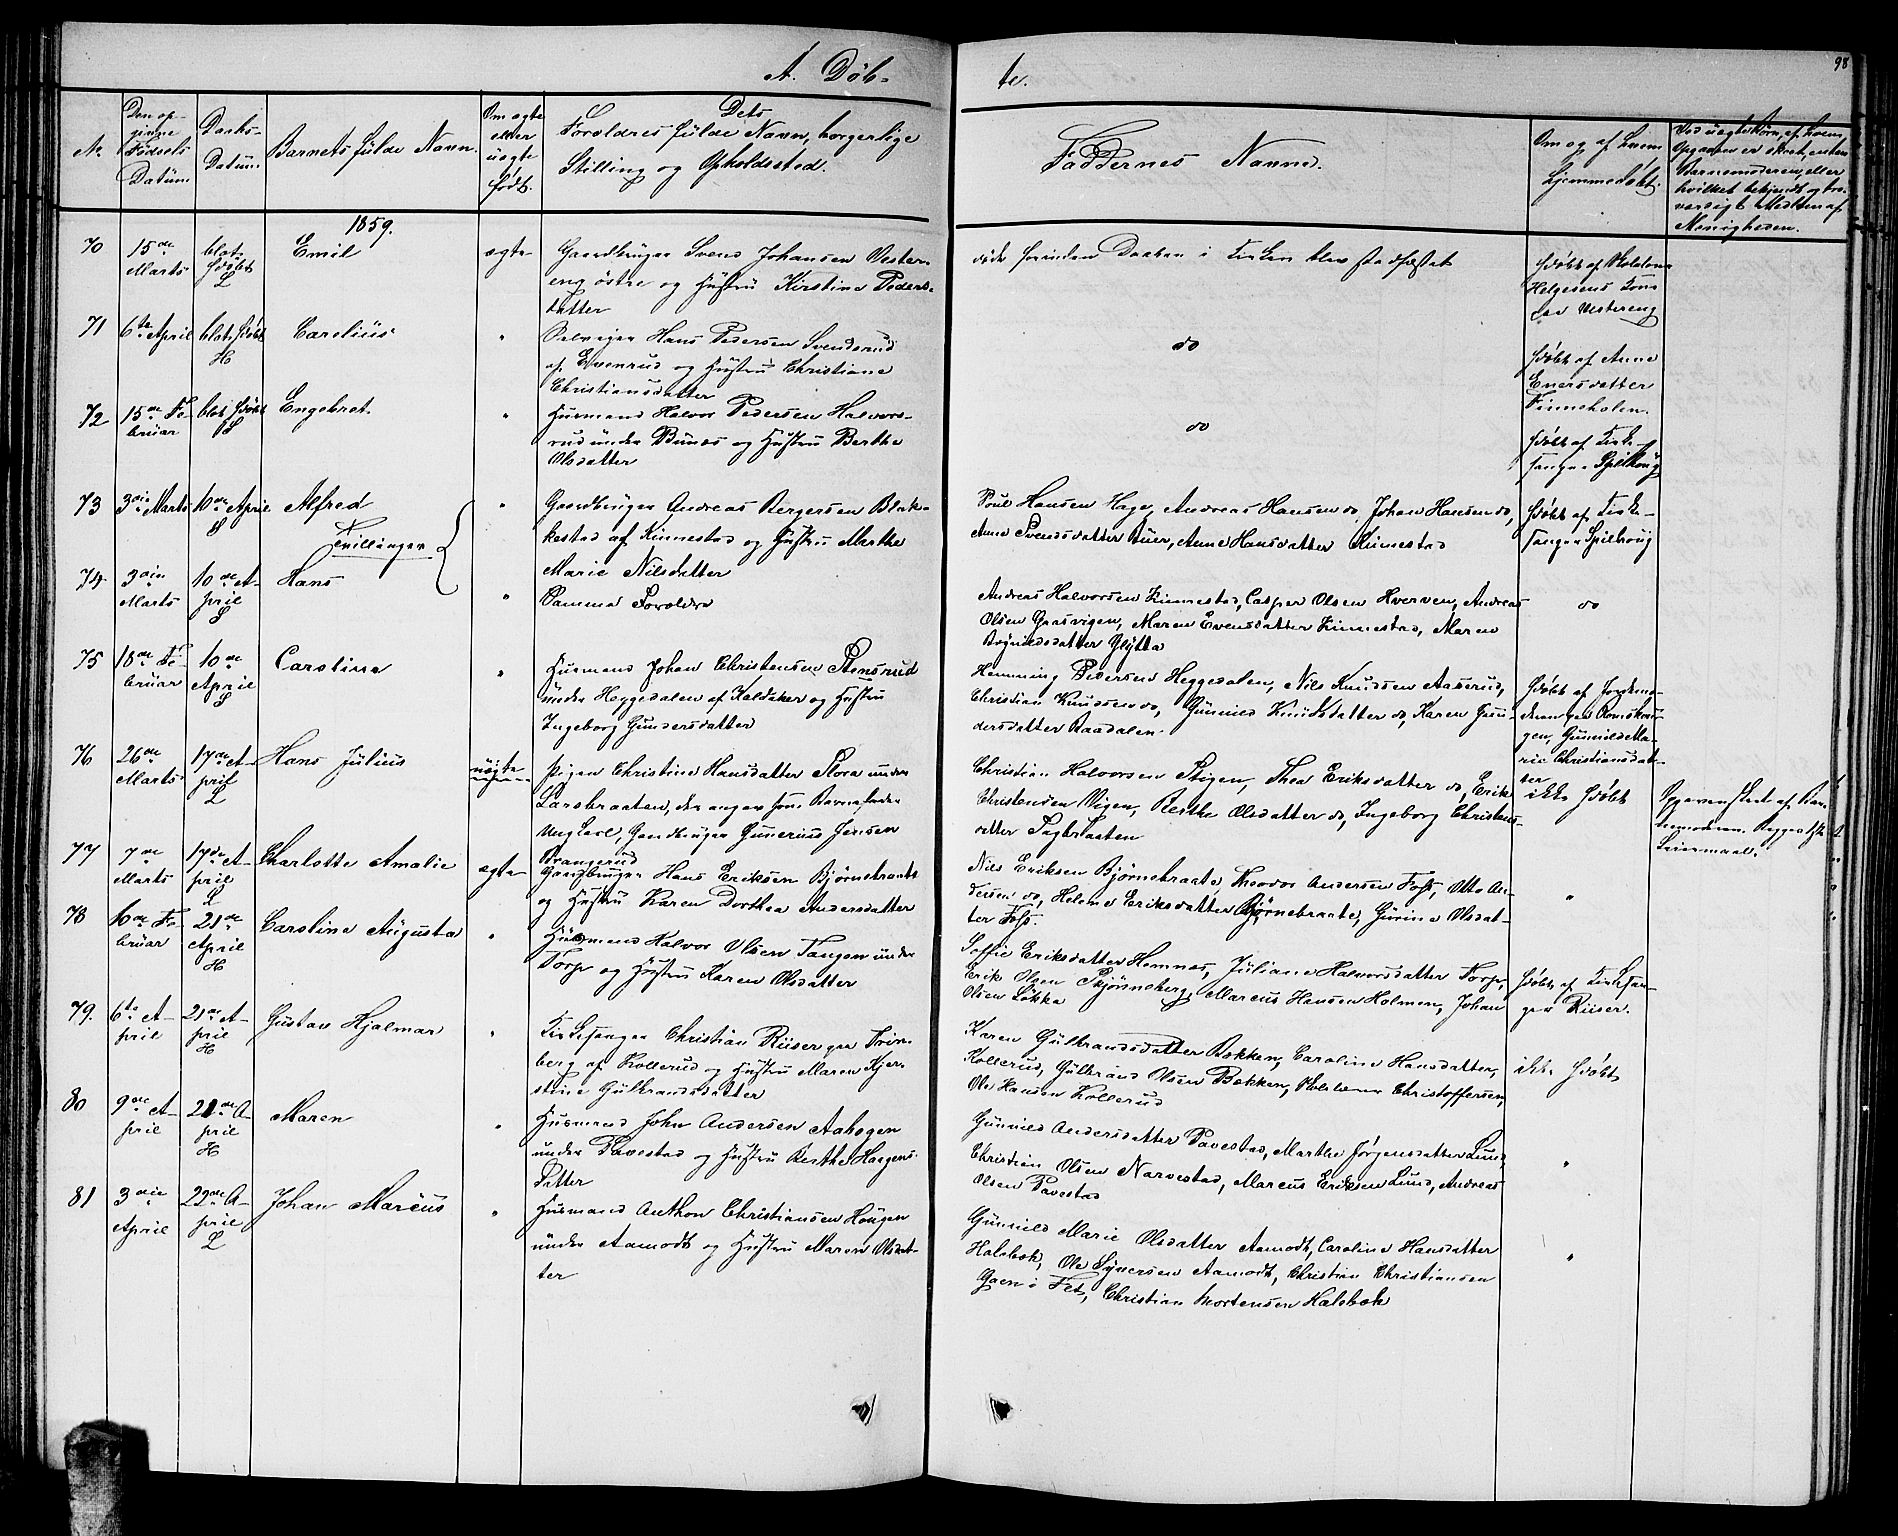 A. Døb-
te.
98
No
Den op-
givne
Fødsels
Datum
Daabs-
Datum.
Barnets fulde Navn.
Om ægte
eller
uægte
født.
Dets
Forældres fulde Navn, borgerlige
Stilling og Opholdssted.
Faddernes Navne.
Om og af hvem
hjemmedøbt.
Ved uægte Børn, af hvem
Opgaven er skeet, enten
Barnemoderen, eller
hvilket bekjendt og tro-
værdigt Medlem af
Menigheden.
1859.
70
15de
Marts
blot
hdøbt
L
Emil
ægte
Gaardbruger Svend Johansen Vester-
eng østre og Hustru Kirstine Peders-
datter
døde forinden Daaben i Kirken blev stadfæstet
hdøbt af
Helgesens Kone
Vestereng
71
6te April
blot hdøbt
H
Carelius
"
Selveier Hans Pedersen Svendsrud
af Evenrud og Hustru Christiane
Christiansdatter
do
hdøbt af Anne
Enersdatter
Finneholen.
72
15de Fe-
bruar
blot hdøbt
S
Engebret
"
Husmand Halvor Pedersen Halvors-
rud under Bunæs og Hustru Berthe
Olsdatter
do
hdøbt af Kirke-
sanger Spilhoug
73
3die Marts
10de April
S
Alfred
Tvillinger
"
Gaardbruger Andreas Bergersen Blak-
kestad af Kinnestad og Hustru Marthe
Marie Nilsdatter
Poul Hansen Hage, Andreas Hansen do, Johan Hansen do,
Anne Svendsdatter Auer, Anne Hansdatter Kinnestad
hdøbt af Kirke-
sanger Spilhoug
74
3die
Marts
10de A-
pril
S
Hans
"
Samme Forældre
Andreas Halvorsen Kinnestad, Casper Olsen Hverven, Andreas
Olsen Græsvigen, Maren Evensdatter Kinnestad, Maren
Glytta
do
75
18de Fe-
bruar
10de
April
S
Caroline
"
Husmand Johan Christensen Stensrud
under Heggedalen af Kaldaker og Hustru
Ingeborg Gundersdatter
Hemming Pedersen Heggedalen, Nils Knudsen Aaserud,
Christian Knudsen do, Gunnild Knudsdatter do, Karen Gun-
dersdatter Aasdalen.
hdøbt af Jordemo-
deren paa Romskou-
gen, Gunnild Ma-
rie Christiansdat-
ter
76
26de
Marts
17de A-
pril
L
Hans Julius
uægte
Pigen Christine Hansdatter Flora under
Larsbraaten, der angav som Barnefader
Ungkarl, Gaardbruger Gunerius Jensen
Strangerud
Christian Halvorsen Stigen, Thea Eriksdatter do, Erik
Christensen Vigen, Berthe Olsdatter do, Ingeborg Christens-
datter Sagbraaten
ikke hdøbt
Opgaven skeet af Bar-
nemoderen. Begges 1ste
Leiermaal.
77
7de
Marts
17de A-
pril
L
Charlotte Amalie
ægte
Gaardbruger Hans Eriksen Bjørnebraate
og Hustru Karen Dorthea Andersdatter
Nils Eriksen Bjørnebraate, Theodor Andersen Foss, Otto An-
dersen do, Helene Eriksdatter Bjørnebraate, Gurine Olsdat-
ter Foss.
"
78
16de Fe-
bruar
21de
April
H
Caroline Augusta
"
Husmand Halvor Olsen Tangen under
Torp og Hustru Karen Olsdatter
Soffie Eriksdatter Hemnæs, Juliane Halvorsdatter Torp,
Erik Olsen Skjønneberg, Marcus Hansen Holmen, Johan
Olsen Løkka
hdøbt af Kirkesan-
ger Riiser.
79.
6te A-
pril
21de A-
pril
H
Gustav Hjalmar
"
Kirkesanger Christian Riiser paa Frim-
berg af Kollerud og Hustru Maren Kjer-
stine Gulbrandsdatter
Karen Gulbrandsdatter Bækken, Caroline Hansdatter
Kollerud, Gulbrand Olsen Bækken, Christoffersen,
Ole Hansen Kollerud
ikke hdøbt
80
9de A-
pril
21de A-
pril
H
Maren
"
Husmand John Andersen Aabogen
under Tavestad og Hustru Berthe Haagens-
datter
Gunnild Andersdatter Tavestad, Marthe Jørgensdatter Lund,
Christian Olsen Narvestad, Marcus Eriksen Lund, Andreas
Olsen Tavestad
"
81
3die
April
22de A-
pril
L
Johan Marcus
"
Husmand Anthon Christiansen Hougen
under Aamodt og Hustru Maren Olsdat-
ter
Gunnild Marie Olsdatter Aamodt, Caroline Hansdatter
Halsbæk, Ole Syversen Aamodt, Christian Christiansen
i Fet, Christian Mortensen Halsbæk
"